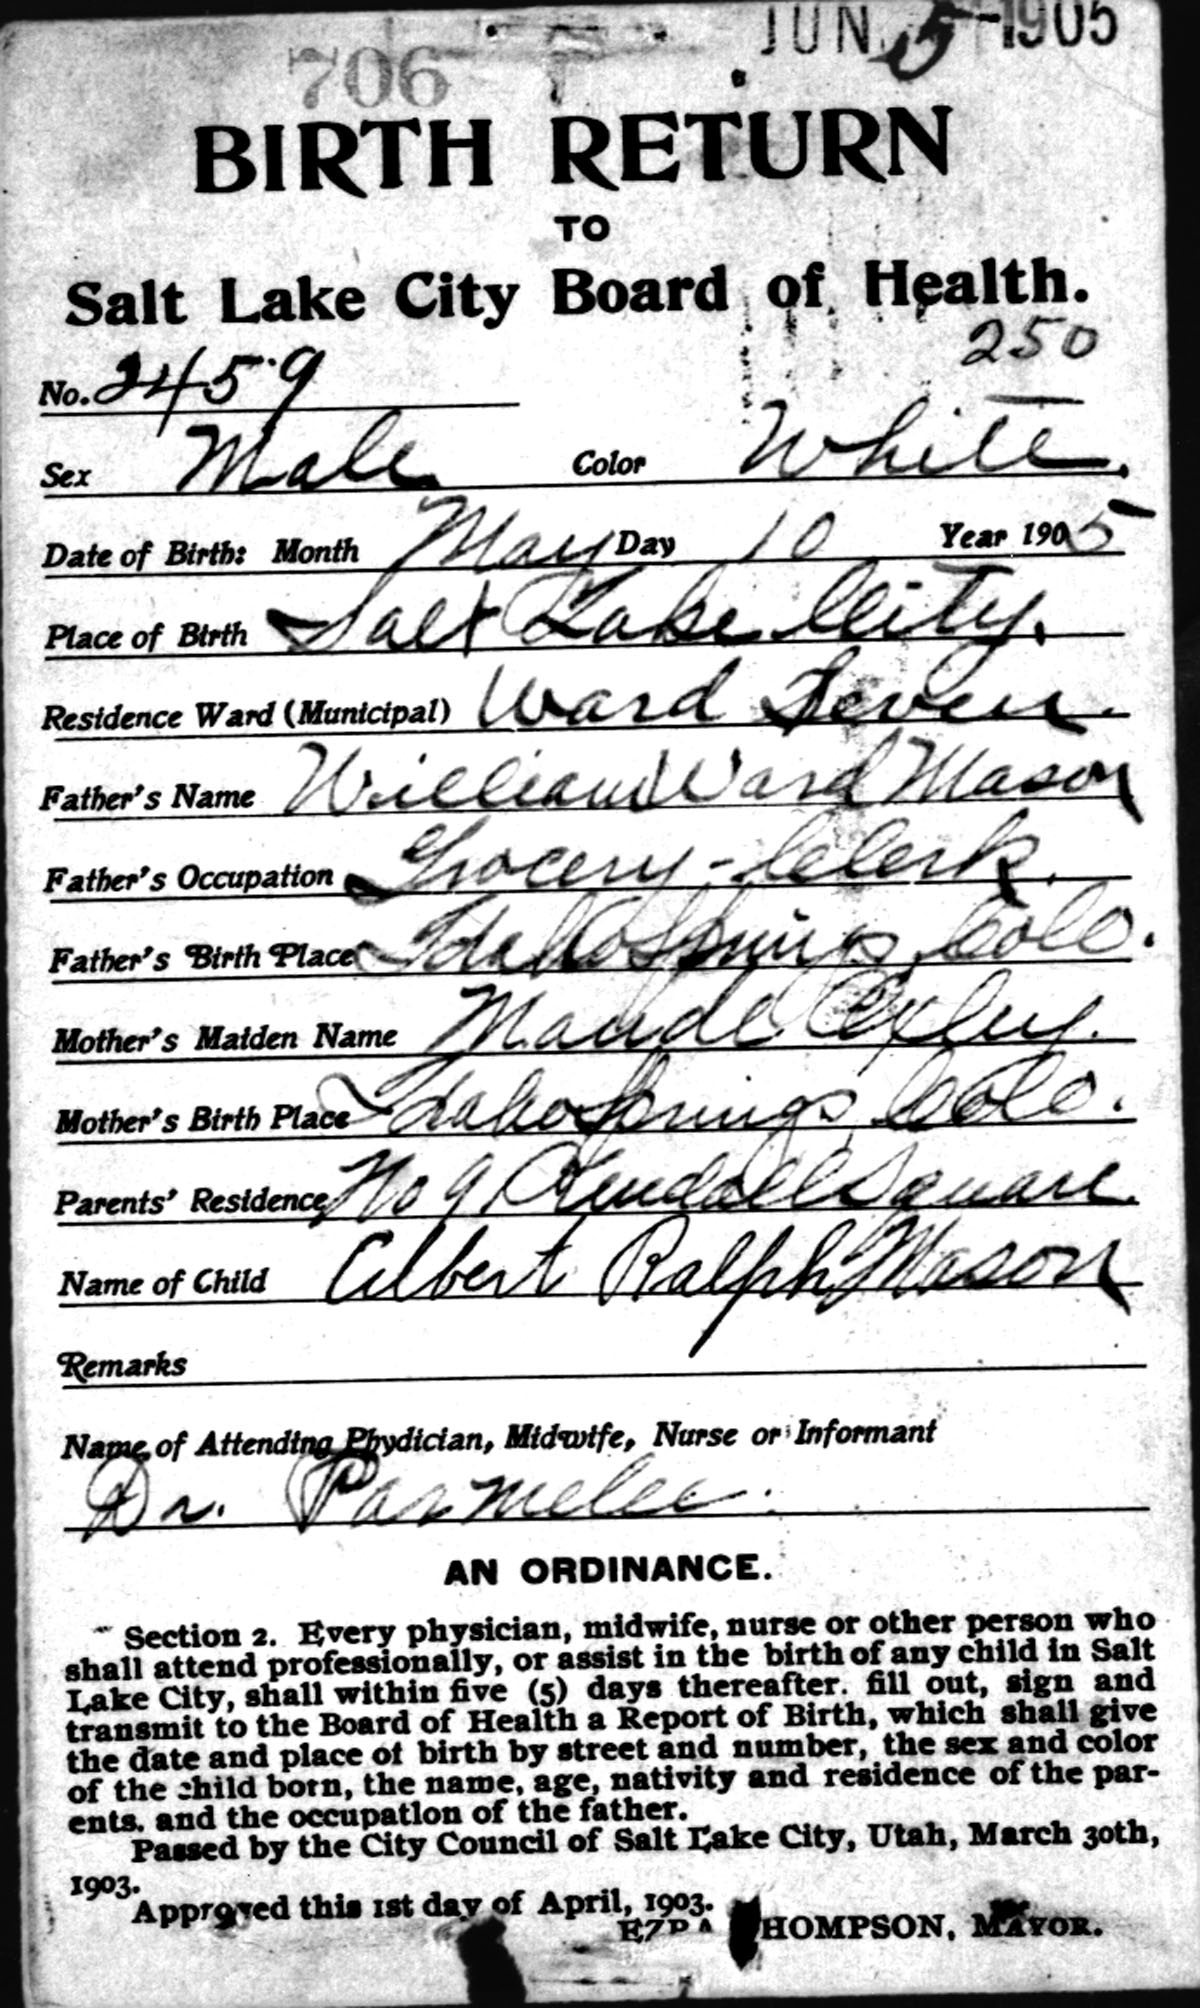 706 JUN 5 -1905
BIRTH RETURN
TO
Salt Lake City Board of Health.
250
No. 2459
Sex Male Color White.
Date of Birth: Month May Day 10 Year 1905
Place of Birth Salt Lake City.
Residence Ward (Municipal) Ward Seven.
Father's Name William Ward Mason
Father's Occupation Grocery-Clerk.
Father's Birth Place Idaho Springs, Colo.
Mother's Maiden Name Maude
Mother's Birth Place Idaho Springs, Colo.
Parents' Residence No 9, Kendall Square.
Name of Child Albert Ralph Mason
Remarks
Name of Attending Phydician, Midwife, Nurse or Informant
Dr. Parmelee.
AN ORDINANCE.
Section 2. Every physician, midwife, nurse or other person who
shall attend professionally, or assist in the birth of any child in Salt
Lake City, shall within five (5) days thereafter. fill out, sign and
transmit to the Board of Health a Report of Birth, which shall give
the date and place of birth by street and number, the sex and color
of the child born, the name, age, nativity and residence of the par-
ents. and the occupation of the father.
Passed by the City Council of Salt Lake City, Utah, March 30th,
1903.
Approved this 1st day of April, 1903.
EZRA THOMPSON, MAYOR.